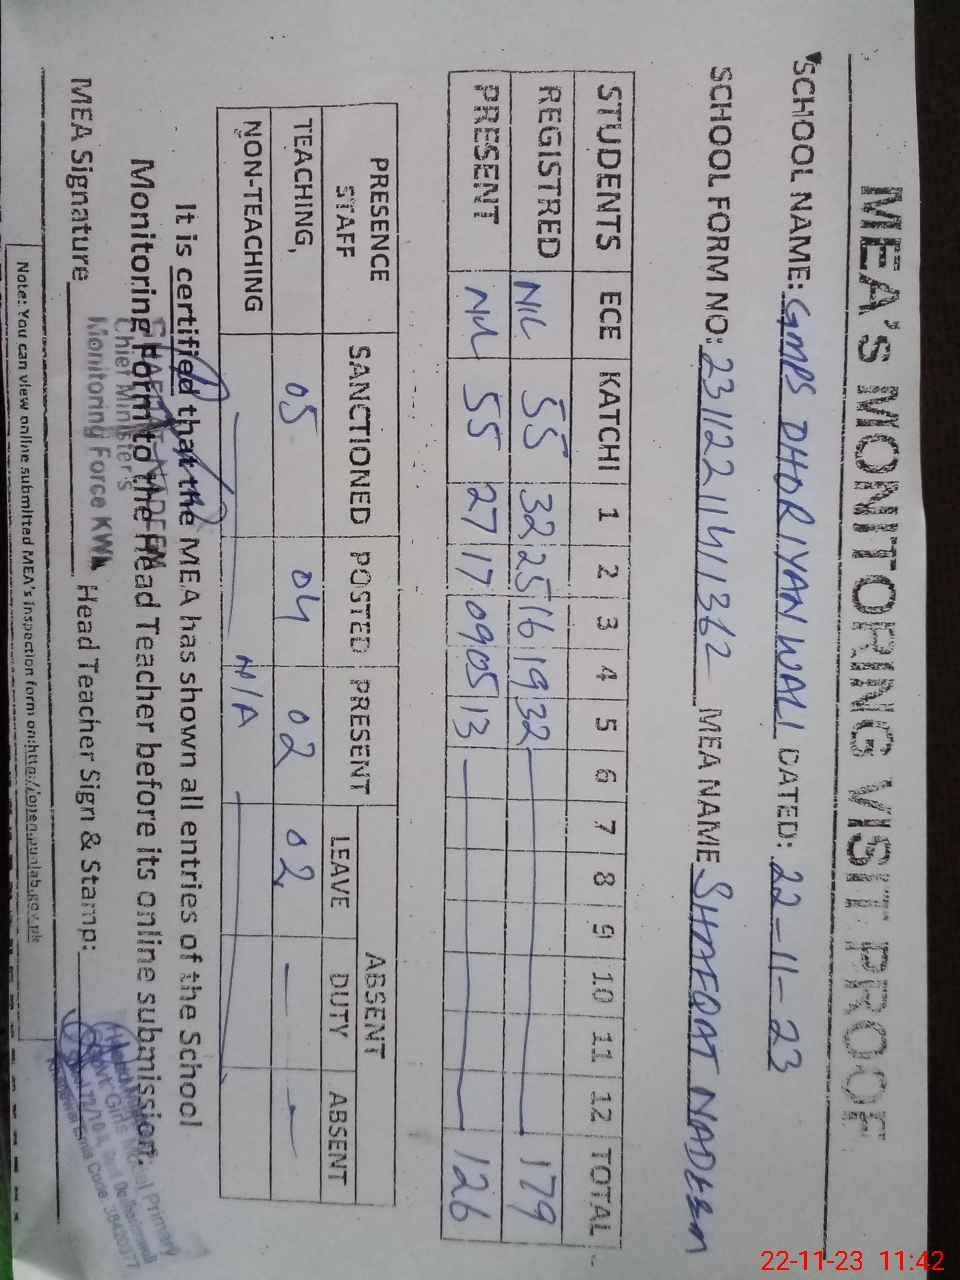 MEA'S MONITORING VISIT PROOF
SCHOOL NAME: GMPS DHORIYAN WALI DATED: 22-11-23
SCHOOL FORM NO: 231122114141362 MEA NAME SHAFQAT NADEEM
STUDENTS ECE KATCHI 1 2 3 4 5 6 7 8 9 10 11 12 TOTAL
REGISTRED NIL 55 32 25 16 19 32 179
PRESENT NIL 55 27 17 09 05 13 126
PRESENCE STAFF SANCTIONED POSTED PRESENT ABSENT
LEAVE DUTY ABSENT
TEACHING, 05 04 02 02 - -
NON-TEACHING N/A
It is certified that the MEA has shown all entries of the School
Monitoring Form to the Head Teacher before its online submission.
SHAFQAT NADEEM
Chief Minister's
Monitoring Force KWL
MEA Signature Head Teacher Sign & Stamp:
Govt. Girls Model Primary
Code 38420077
Note: You can view online submitted MEA's inspection form on:http://open.punjab.gov.pk
22-11-23 11:42